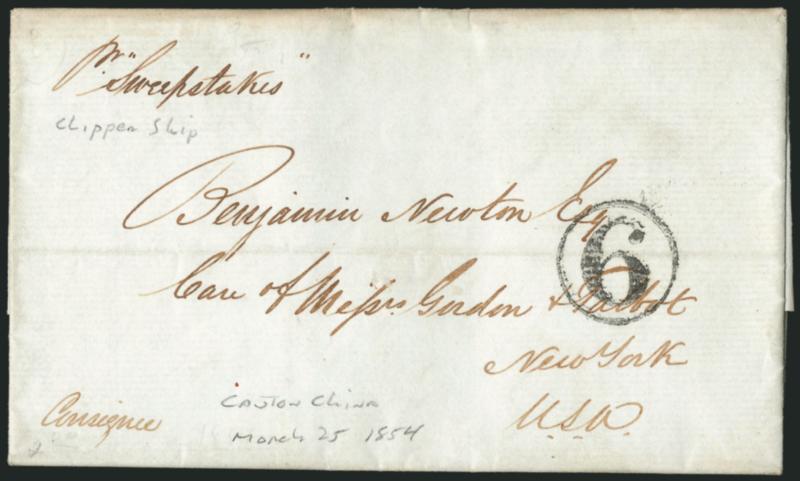 pr "Sweepstakes"
Clipper Ship
Benjamin Newton Esq
6
Care of Messrs Gordon & Talbot
New York
U.S.A.
Consignee
Canton China
March 25 1854